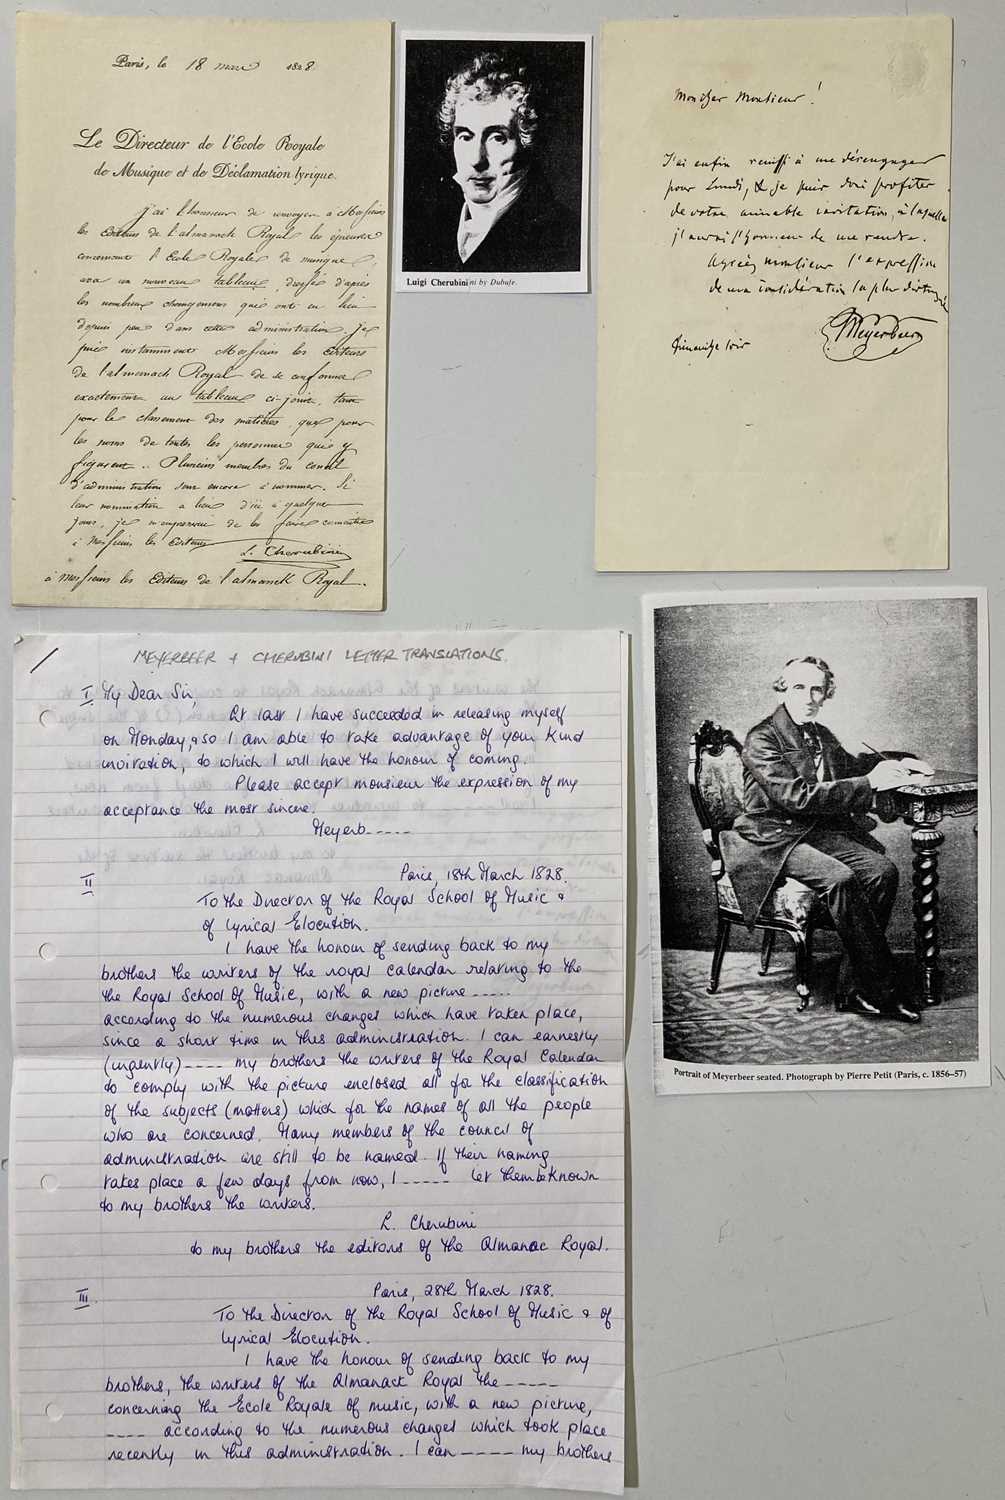 Paris, le 18 mars 1828.
Le Directeur de l'Ecole Royale
de Musique et de Déclamation lyrique.
j'ai l'honneur de renvoyer à Messieurs
les Editeurs de l'almanach Royal les épreuves
concernant l'Ecole Royale de musique,
avec un nouveau tableau, dressé d'après
les nombreux changemens qui ont eu lieu
depuis peu dans cette administration. je
prie instamment Messieurs les Editeurs
de l'almanach Royal de se conformer
exactement au tableau ci-joint, tant
pour le classement des matières, que pour
les noms de toutes les personnes qui y
figurent. Plusieurs membres du conseil
d'administration sont encore à nommer. Si
leur nomination a lieu d'ici à quelques
jours, je m'empresserai de les faire connaitre
à Messieurs les Editeurs
L. Cherubini
à Messieurs les Editeurs de l'almanach Royal.
Luigi Cherubini by Dubufe.
Mon cher Monsieur!
J'ai enfin reussi à me désengager
pour Lundi, & je puis donc profiter
de votre aimable invitation, à laquelle
j'aurai l'honneur de me rendre.
Agréez Monsieur l'expression
de ma considération la plus distinguée
Meyerbeer
Dimanche soir
MEYERBEER + CHERUBINI LETTER TRANSLATIONS.
I My Dear Sir,
At last I have succeeded in releasing myself
on Monday, & so I am able to take advantage of your kind
invitation, to which I will have the honour of coming.
Please accept monsieur the expression of my
acceptance the most sincere
Meyerb-----
II Paris, 18th March 1828.
To the Director of the Royal School of Music &
of Lyrical Elocution.
I have the honour of sending back to my
brothers the writers of the royal calendar relating to the
the Royal School of Music, with a new picture -----
according to the numerous changes which have taken place,
since a short time in this administration. I can earnestly
(urgently) ---- my brothers the writers of the Royal Calendar
to comply with the picture enclosed all for the classification
of the subjects (matters) which for the names of all the people
who are concerned. Many members of the council of
administration are still to be named. If their naming
takes place a few days from now, I ----- let them be known
to my brothers the writers.
L. Cherubini
to my brothers the editors of the Almanac Royal.
III Paris, 28th March 1828.
To the Director of the Royal School of Music & of
Lyrical Elocution.
I have the honour of sending back to my
brothers, the writers of the Almanack Royal the -----
concerning the Ecole Royale of music, with a new picture,
---- according to the numerous changes which took place
recently in this administration. I can ----- my brothers
Portrait of Meyerbeer seated. Photograph by Pierre Petit (Paris, c. 1856–57)